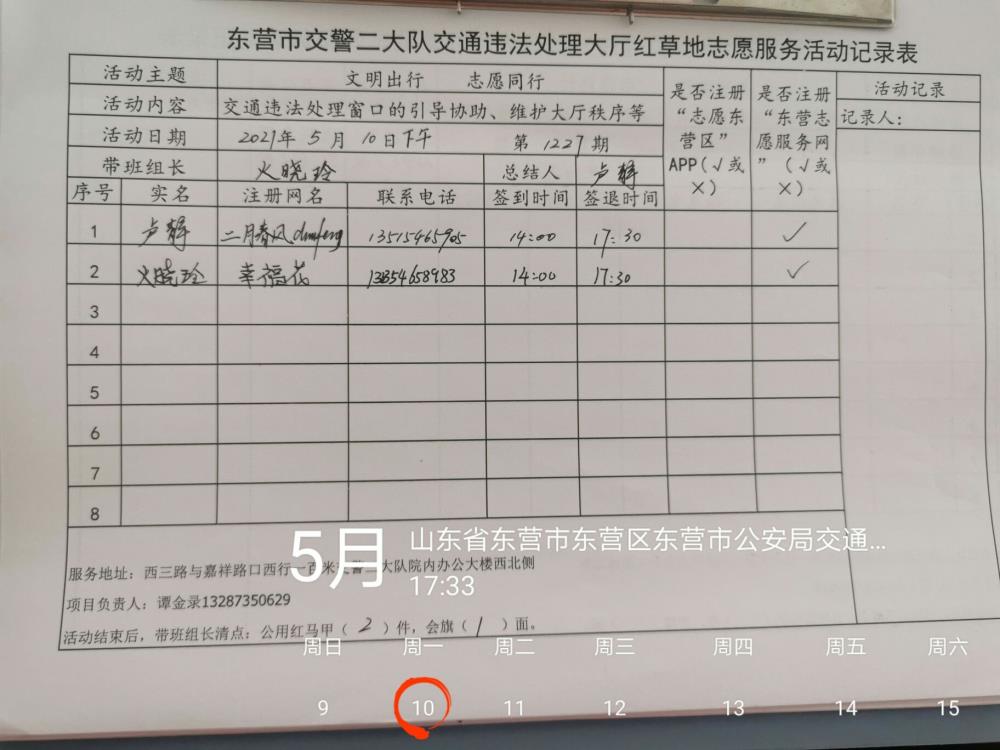 东营市交警二大队交通违法处理大厅红草地志愿服务活动记录表
活动主题 文明出行 志愿同行
活动内容 交通违法处理窗口的引导协助、维护大厅秩序等
活动日期 2021年 5 月 10 日下午 第 1227 期
带班组长 火晓玲 总结人 卢静
是否注册“志愿东营区”APP(√或×)
是否注册“东营志愿服务网”(√或×)
活动记录
记录人:
序号 实名 注册网名 联系电话 签到时间 签退时间
1 卢静 二月春风 13515465905 14:00 17:30 ✓
2 火晓玲 幸福花 14:00 17:30 ✓
3
4
5
6
7
8
服务地址:西三路与嘉祥路口西行一百米交警二大队院内办公大楼西北侧
项目负责人:谭金录13287350629
活动结束后,带班组长清点:公用红马甲( 2 )件,会旗( 1 )面。
5月
山东省东营市东营区东营市公安局交通...
17:33
周日 周一 周二 周三 周四 周五 周六
9 10 11 12 13 14 15